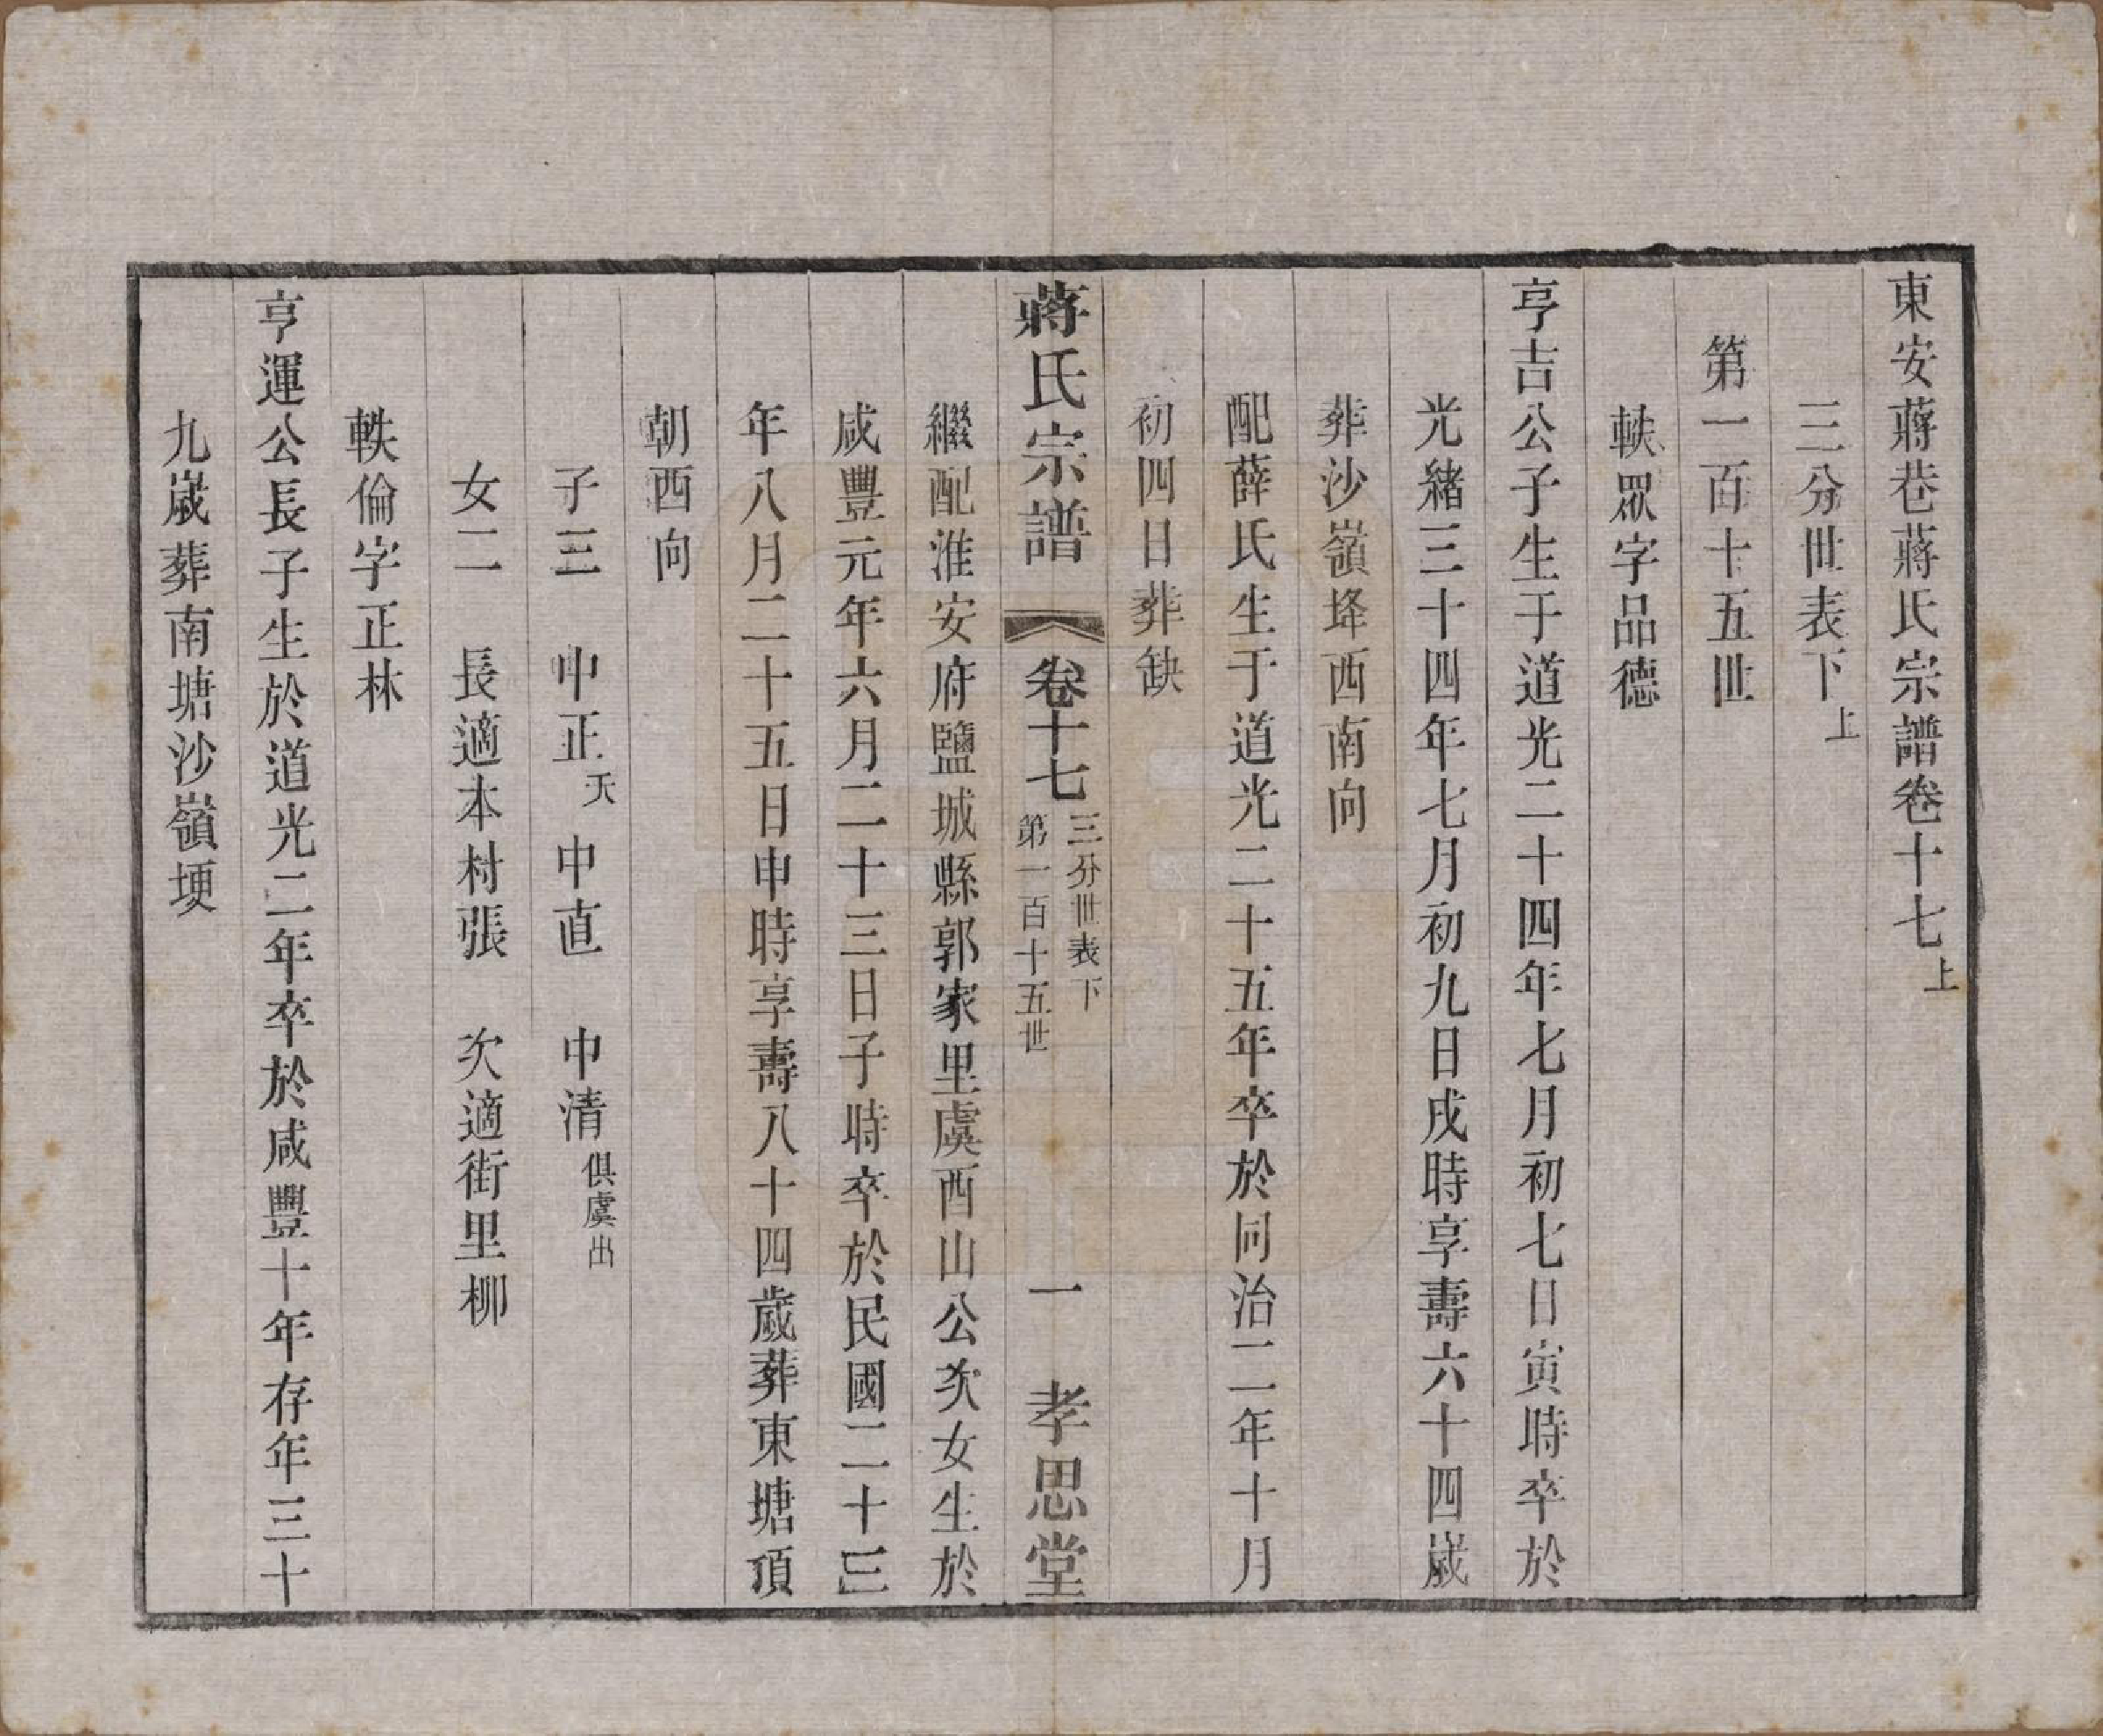 東安蔣巷蔣氏宗譜卷十七上
三分世表下上
第一百十五世
軼眾字品德
亨吉公子生于道光二十四年七月初七日寅時卒於
光緒三十四年七月初九日戌時享壽六十四歲
葬沙嶺垾西南向
配薛氏生于道光二十五年卒於同治二年十月
初四日葬缺
蔣氏宗譜 卷十七 三分世表下 第一百十五世 一 孝思堂
繼配淮安府鹽城縣郭家里虞西山公次女生於
咸豐元年六月二十三日子時卒於民國二十三
年八月二十五日申時享壽八十四歲葬東塘頂
朝西向
子三 中正天 中直 中清俱虞出
女二 長適本村張 次適街里柳
軼倫字正林
亨運公長子生於道光二年卒於咸豐十年存年三十
九歲葬南塘沙嶺埂